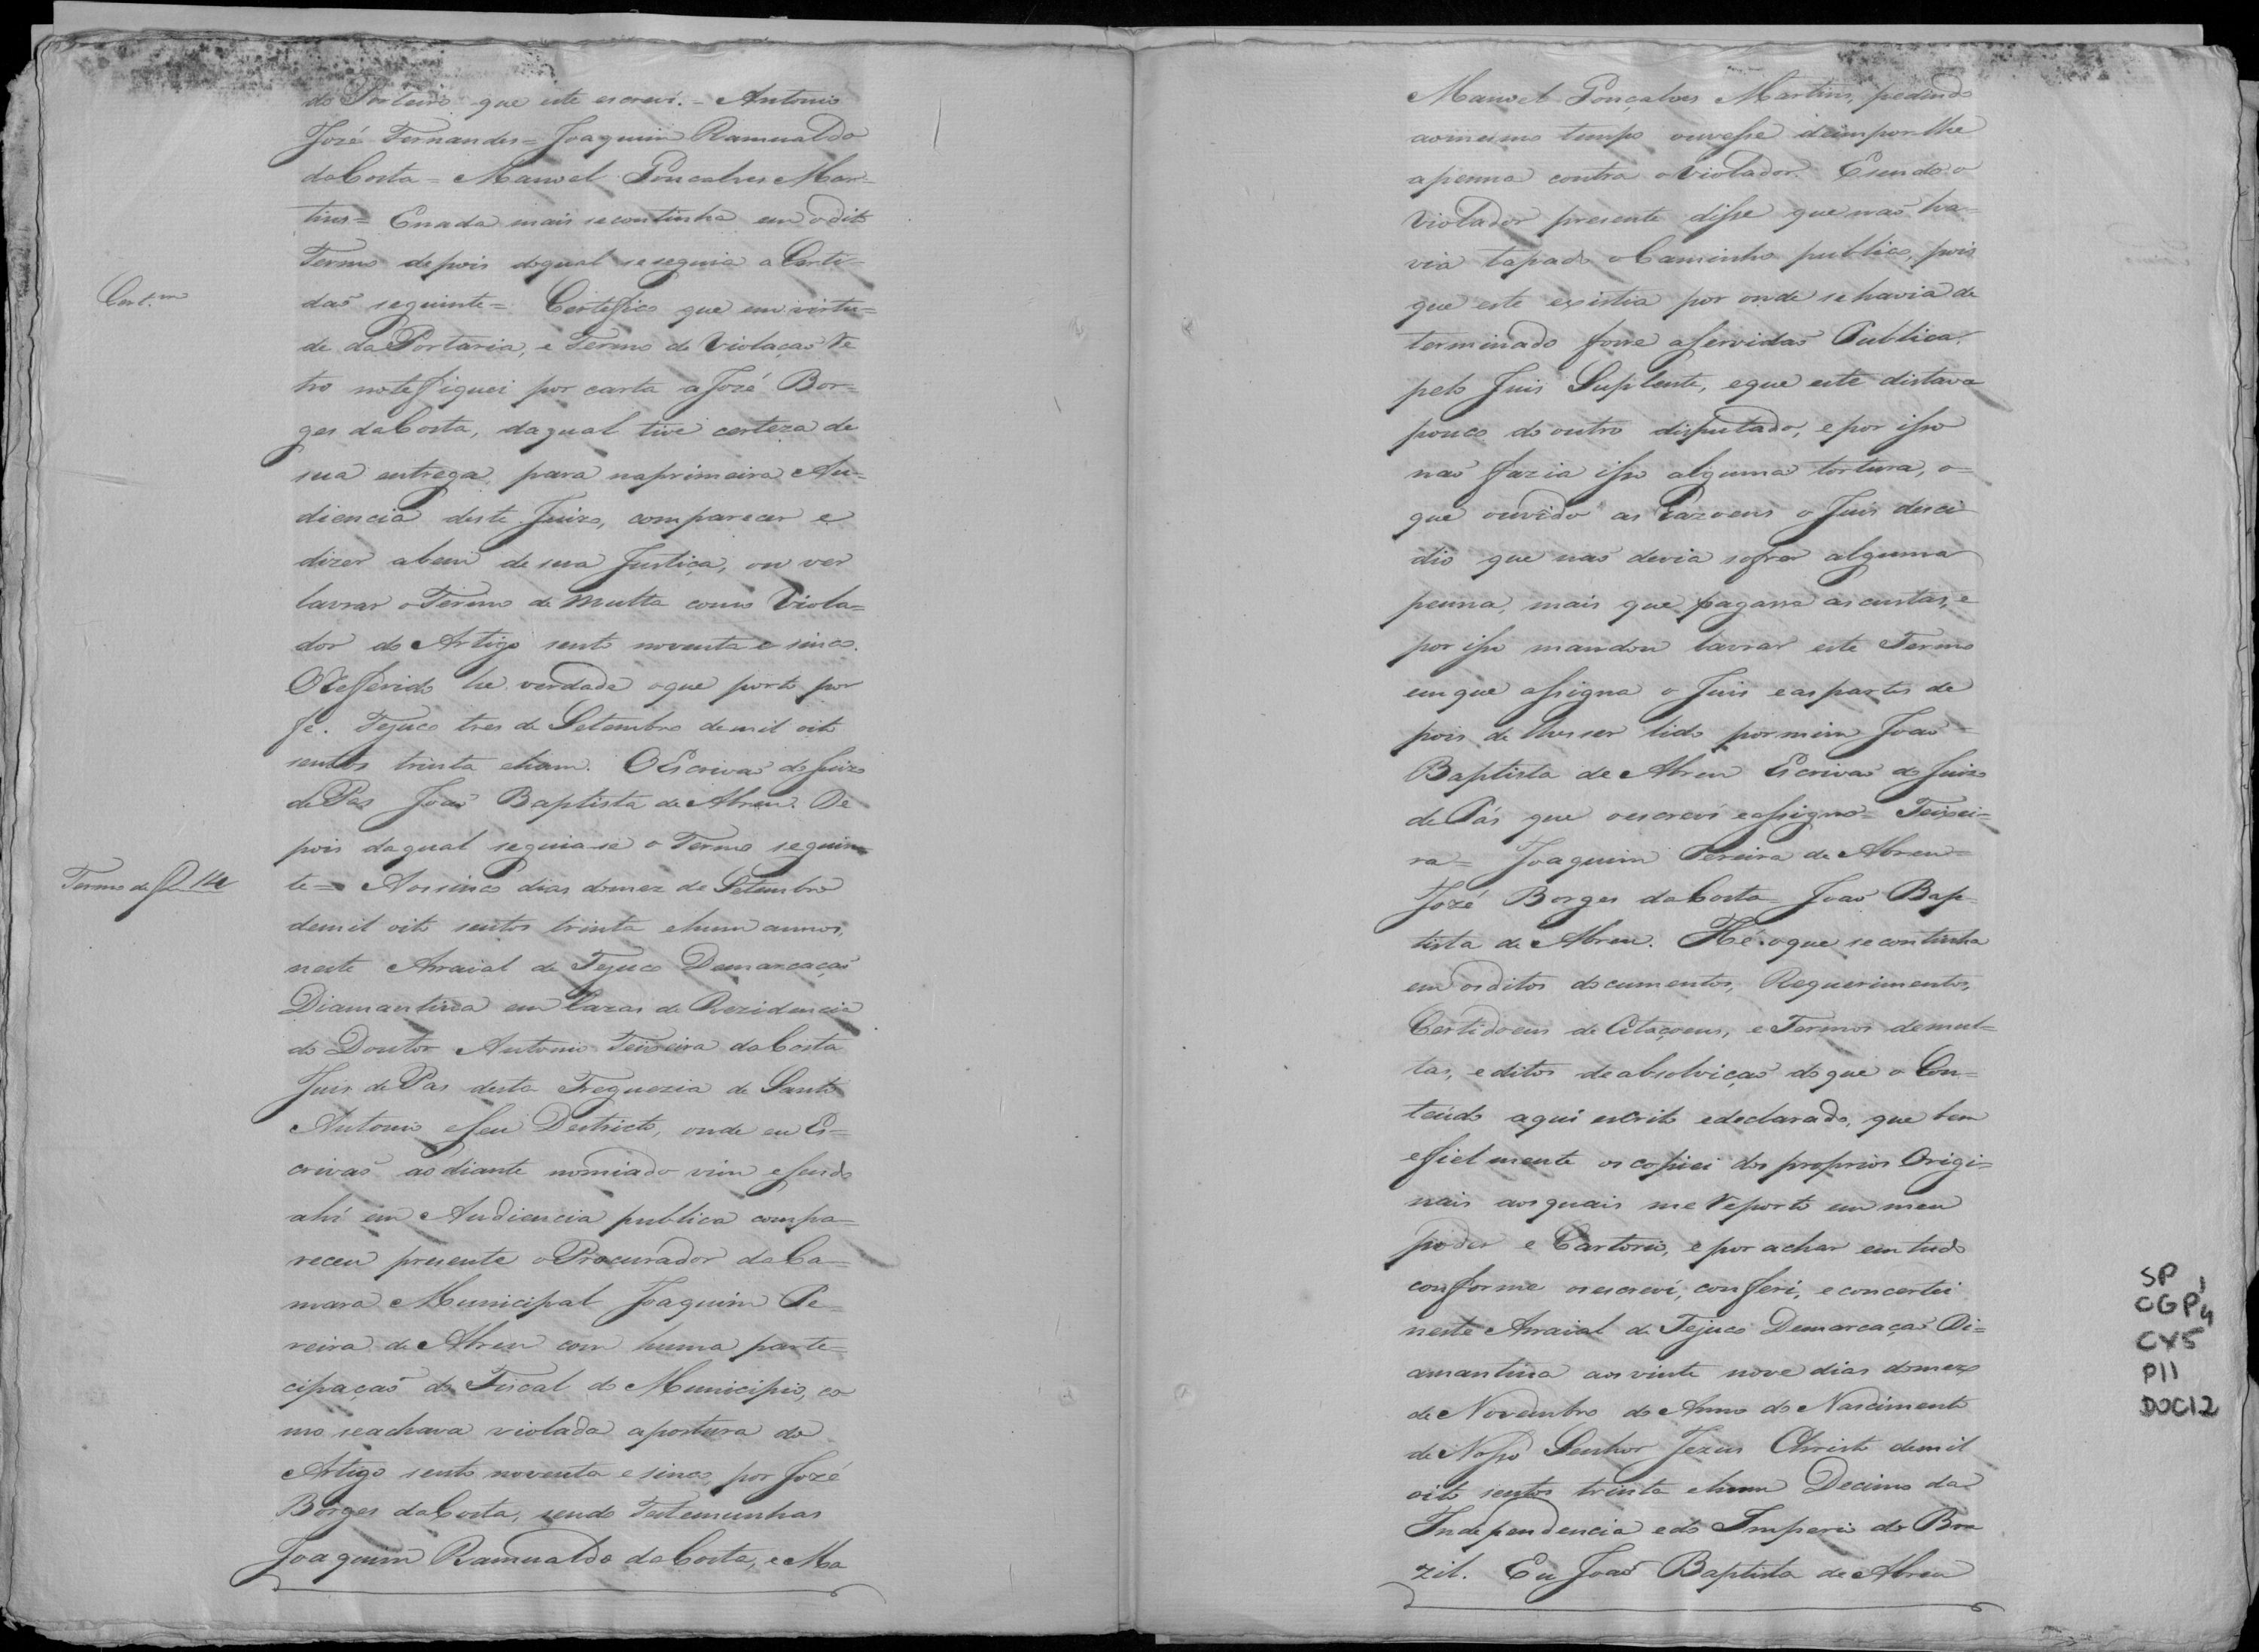 do Porteiro que este escrevi. = Antonio
Jozé Fernandes = Joaquim Ramualdo
da Costa = Manoel Goncalves Mar=
tins = E nada mais se continha em o dito
Termo depois do qual se seguia a Certi=
Cert.m
daõ seguinte = Certefico que em virtu=
de da Portaria, e Termo de Violaçaõ re
tro notefiquei por carta a Jozé Bor=
ges da Costa, da qual tive certeza de
sua entrega, para na primeira Au=
diencia deste Juizo, comparecer e
dizer a bem de sua Justiça, ou ver
lavrar o Termo de Multa como Viola=
dor do Artigo sento noventa e sinco.
O Refferido he verdade o que porto por
fé. Tejuco tres de Setembro de mil oito
sentos trinta e hum. O Escrivaõ do Juizo
de Pas Joaõ Baptista de Abreu. De
pois da qual seguia-se o Termo seguin=
Termo de
te = Aos sinco dias do mez de Setembro
de mil oito sentos trinta e hum annos,
neste Arraial de Tejuco Demarcaçaõ
Diamantina em Cazas de Rezidencia
do Doutor Antonio Teixeira da Costa
Juis de Pas desta Freguezia de Santo
Antonio e seu Destricto, onde eu Es=
crivaõ ao diante nomiado vim e sendo
ahi em Audiencia publica compa=
receu presente o Procurador da Ca=
mara Municipal Joaquim Pe=
reira de Abreu com huma parte=
cipaçaõ do Fiscal do Municipio, co
mo se achava violada a postura do
Artigo sento noventa e sinco, por Jozé
Borges da Costa, sendo Testemunhas
Joaquim Ramualdo da Costa, e Ma
Manoel Gonçalves Martins, pedindo
ao mesmo tempo ouvesse de impor-lhe
a penna contra o Violador. E sendo o
Violador presente disse que naõ ha=
via tapado o Caminho publico, pois
que este existia por onde se havia de
terminado fosse a servidaõ Publica
pelo Juis Suplente, e que este distava
pouco do outro disputado, e por isso
naõ fazia isso alguma tortura, o=
que ouvido as Razoens o Juis desci
dio que naõ devia sofrer alguma
penna, mais que pagasse as custas, e
por isso mandou lavrar este Termo
em que assigna o Juis e as partes de
pois de lhes ser lido por mim Joaõ
Baptista de Abreu Escrivaõ do Juizo
de Pás que o escrevi e assigno = Teixei=
ra = Joaquim Pereira de Abreu =
Jozé Borges da Costa = Joaõ Bap=
tista de Abreu. Hé o que se continha
em os ditos documentos, Requerimentos,
Certidoens de Citaçoens, e Termos de mul=
tas, e ditos de absolviçaõ do que o Con=
teúdo aqui escrito e declarado, que bem
e fielmente os copiei dos proprios Origi=
nais aos quais me reporto em meu
poder e Cartorio, e por achar em tudo
conforme os escrevi, conferi, e concertei
neste Arraial de Tejuco Demarcaçaõ Di=
amantina aos vinte nove dias do mez
de Novembro do Anno do Nascimento
de Nosso Senhor Jezus Christo de mil
oito sentos trinta e hum Decimo da
Independencia e do Imperio do Bra
zil. Eu Joaõ Baptista de Abreu
SP
CGP 1/4
CX5
P11
DOC12